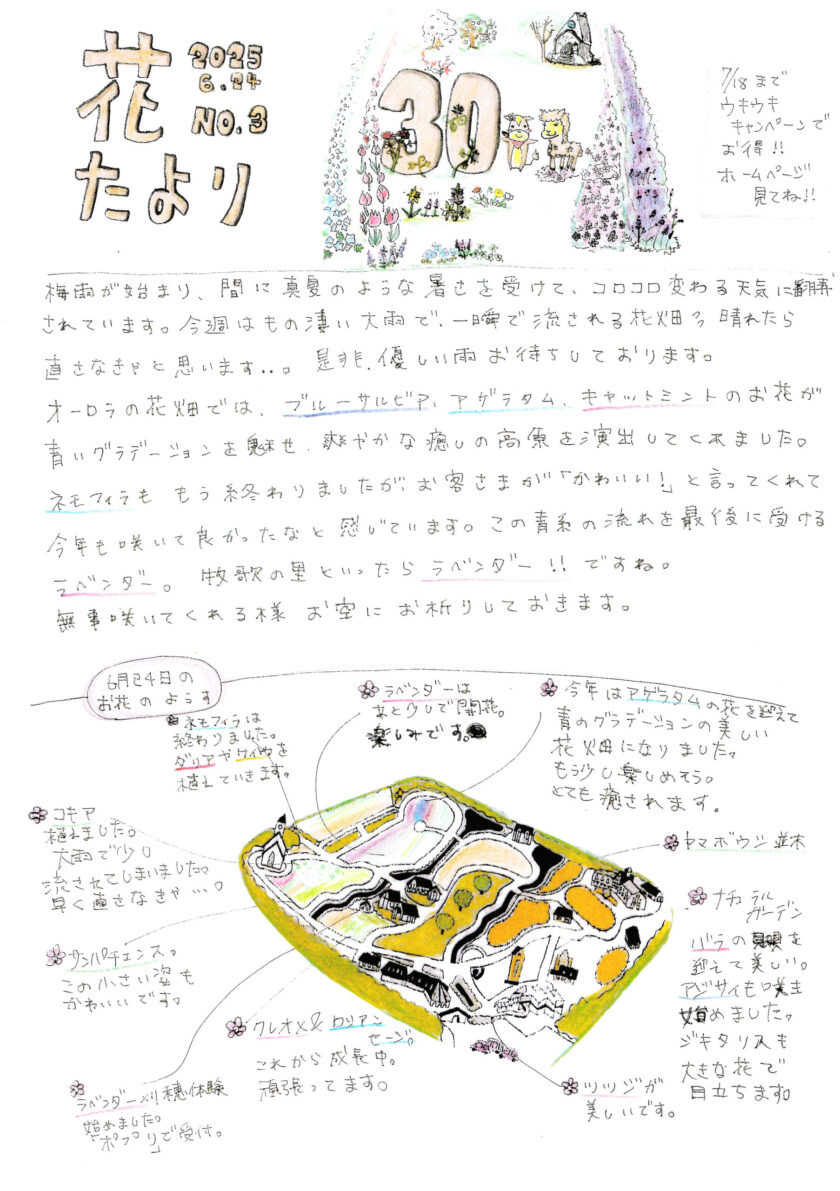 花たより
2025
6.24
NO.3
30
7/18まで
ウキウキ
キャンペーンで
お得!!
ホームページ
見てね!!
梅雨が始まり、間に真夏のような暑さを受けて、コロコロ変わる天気に翻弄
されています。今週はもの凄い大雨で、一瞬で流される花畑を晴れたら
直さなきゃと思います...。是非、優しい雨お待ちしております。
オーロラの花畑では、ブルーサルビア、アゲラタム、キャットミントのお花が
青いグラデーションを魅せ、爽やかな癒しの高原を演出してくれました。
ネモフィラももう終わりましたが、お客さまが「かわいい!」と言ってくれて
今年も咲いて良かったなと感じています。この青系の流れを最後に受ける
ラベンダー。牧歌の里といったらラベンダー!!ですね。
無事咲いてくれる様お空にお祈りしておきます。
6月24日の
お花のようす
ネモフィラは
終わりました。
ダリアやケイトウを
植えていきます。
ラベンダーは
あと少しで開花。
楽しみです。
今年はアゲラタムの花を迎えて
青のグラデーションの美しい
花畑になりました。
もう少し楽しめそう。
とても癒されます。
コキア
植えました。
大雨で少し
流されてしまいました。
早く直さなきゃ...。
ヤマボウシ並木
ナチュラル
ガーデン
バラの見頃を
迎えて美しい。
アジサイも咲き
始めました。
ジキタリスも
大きな花で
目立ちます。
サンパチェンス。
この小さい姿も
かわいいです。
クレオメ&ロシアン
セージ。
これから成長中。
頑張ってます。
ラベンダー刈り穂体験
始めました。
「ポプリ」で受付。
ツツジが
美しいです。